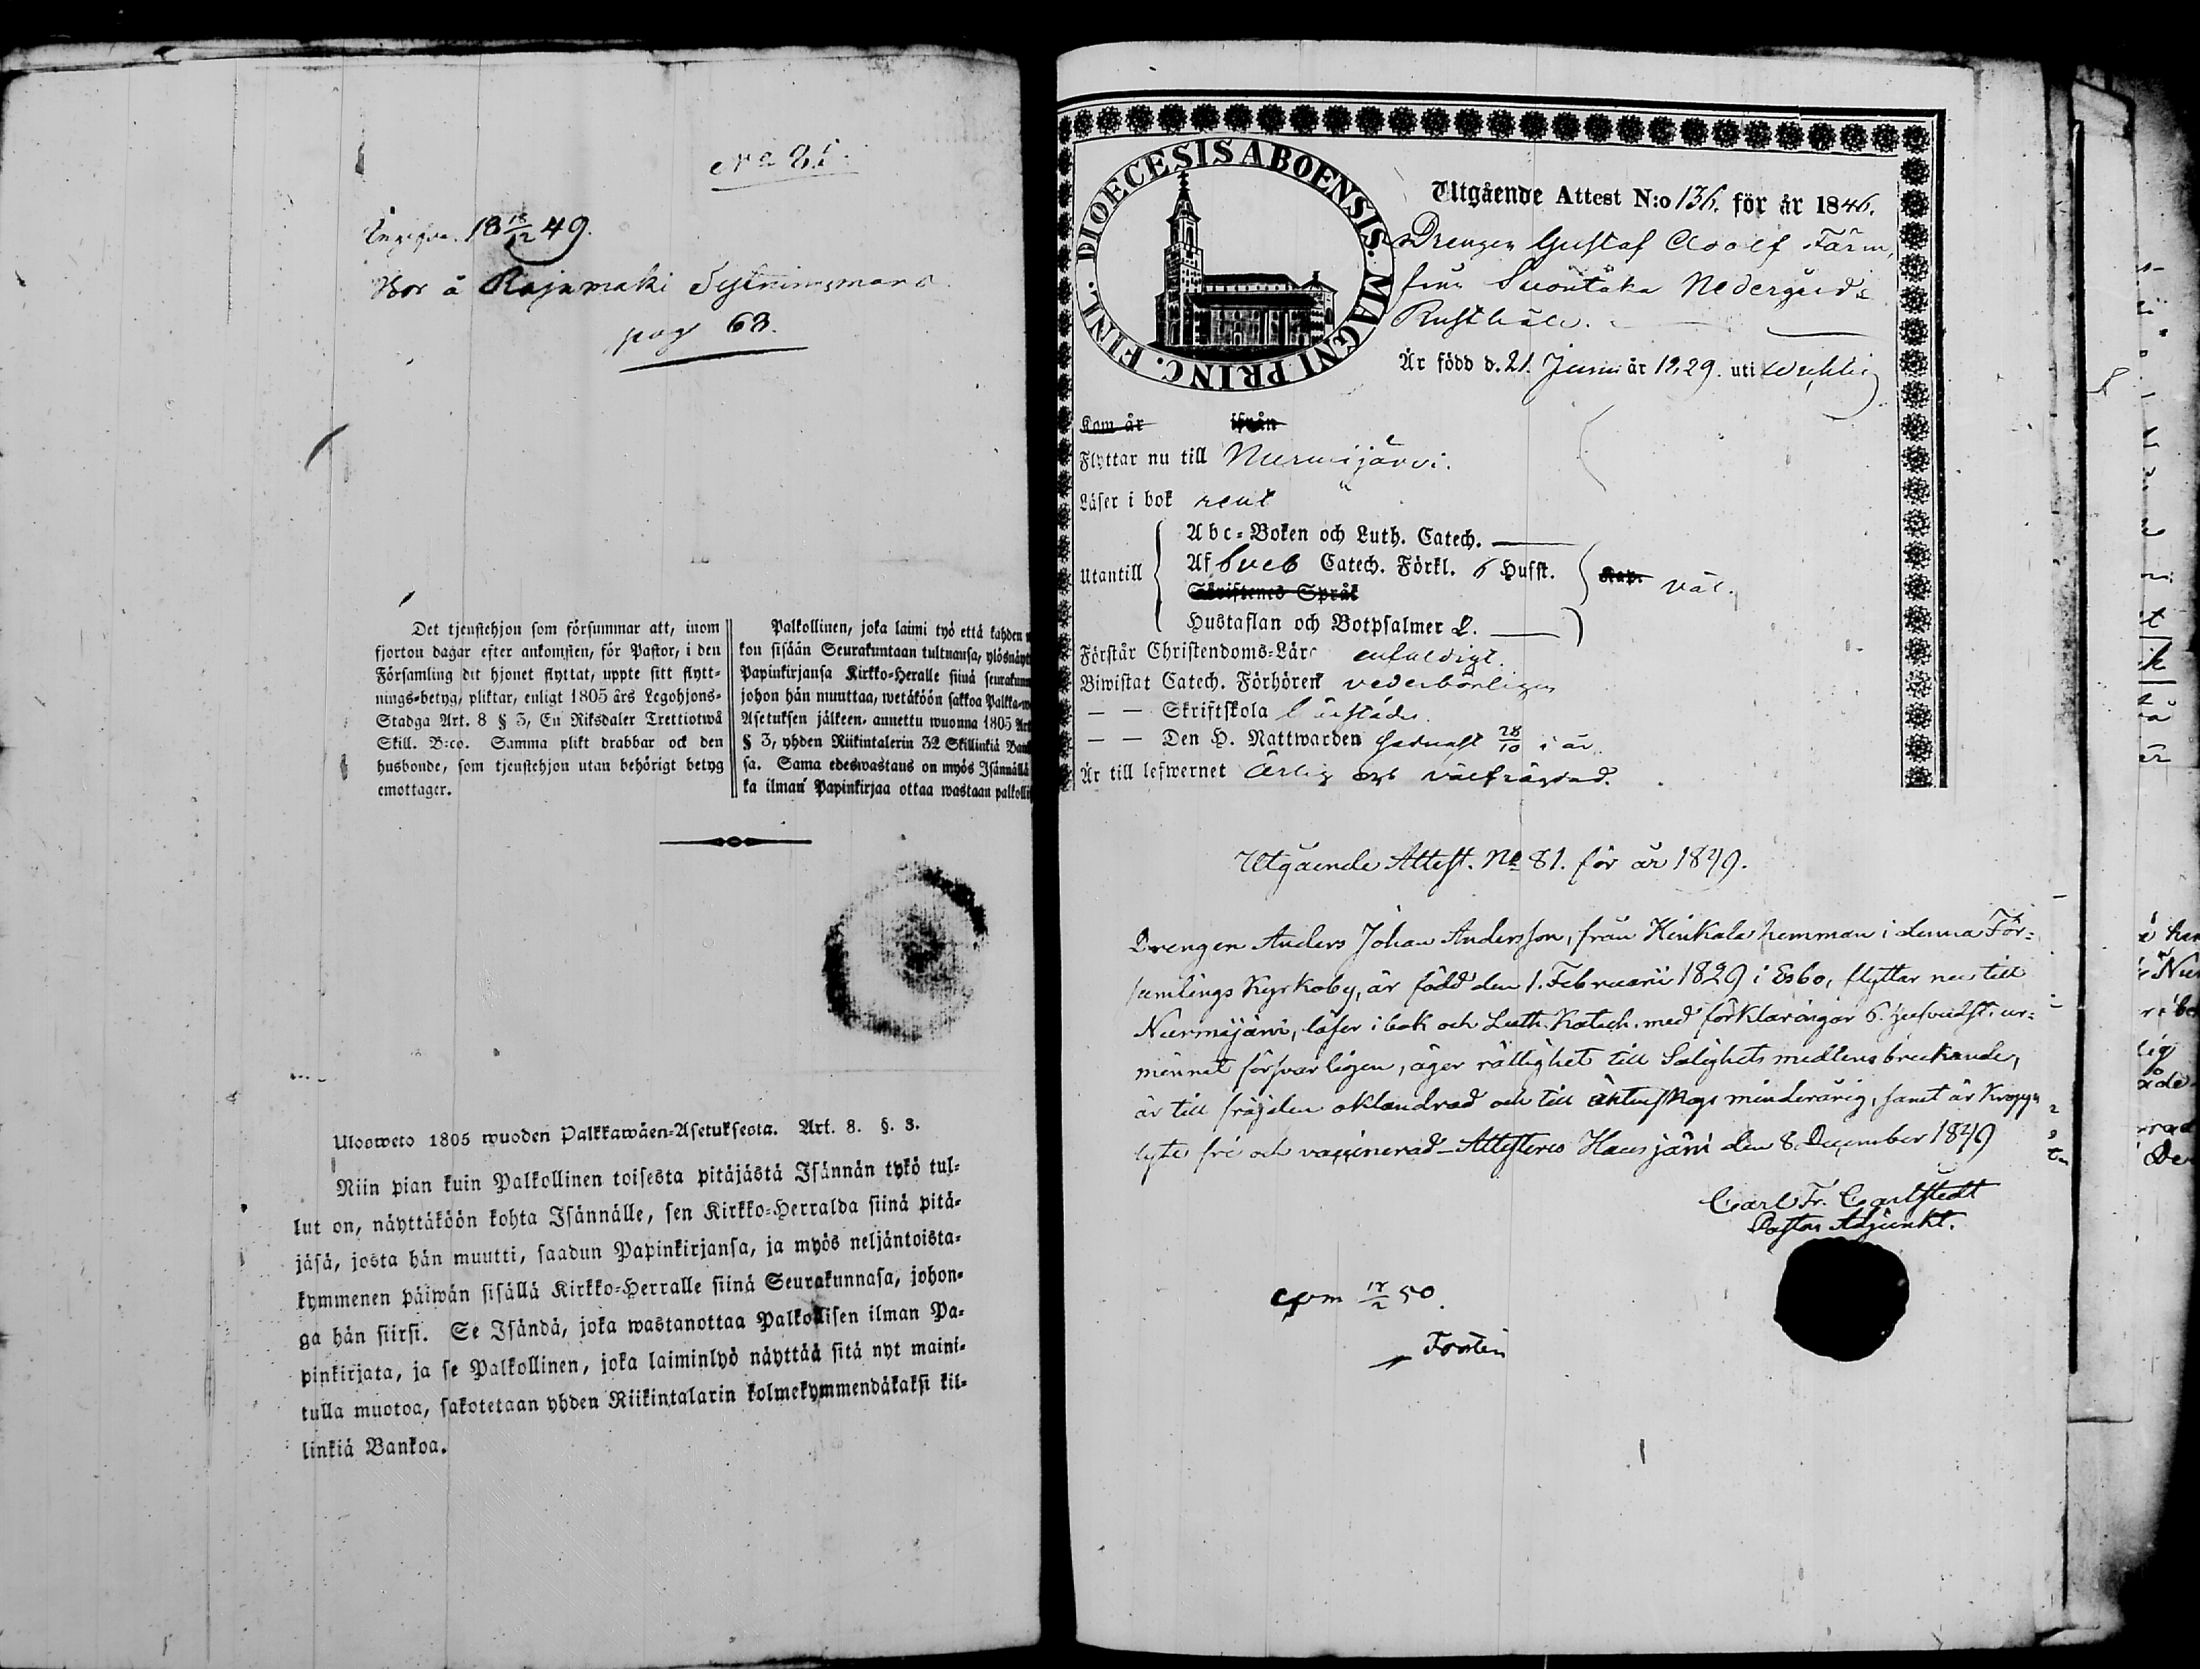 No 85.
18 18/12 49.
Bor å Rajamaki
pag 63.
Det tjenstehjon som försummar att, inom
fjorton dagar efter ankomsten, för Pastor, i den
Församling dit hjonet flyttat, uppte sitt flytt-
nings-betyg, pliktar, enligt 1805 års Legohjons-
Stadga Art. 8 § 3, En Riksdaler Trettiotwå
Skill. B:co. Samma plikt drabbar ock den
husbonde, som tjenstehjon utan behörigt betyg
emottager.
Palkollinen, joka laimi työ että kahden
kon sisään Seurakuntaan tultuansa, ylösnäyt
Papinkirjansa Kirkko-Heralle siinä seurakunn
johon hän muuttaa, wetäköön sakkoa Palkka-w
Asetuksen jälkeen, annettu wuonna 1805 Art
§ 3, yhden Riikintalerin 32 Skillinkiä Ban
sa. Sama edeswastaus on myös Isännällä
ka ilman Papinkirjaa ottaa wastaan palkolli
Ulosweto 1805 wuoden Palkkawäen-Asetuksesta. Art. 8. §. 3.
Niin pian kuin Palkollinen toisesta pitäjästä Isännän tykö tul-
lut on, näyttäköön kohta Isännälle, sen Kirkko-Herralda siinä pitä-
jäsä, josta hän muutti, saadun Papinkirjansa, ja myös neljäntoista-
kymmenen päiwän sisällä Kirkko-Herralle siinä Seurakunnasa, johon-
ga hän siirsi. Se Isändä, joka wastanottaa Palkollisen ilman Pa-
pinkirjata, ja se Palkollinen, joka laiminlyö näyttää sitä nyt maini-
tulla muotoa, sakotetaan yhden Riikintalarin kolmekymmendäkaksi kil-
linkiä Bankoa.
DIOECESIS ABOENSIS. MAGNI PRINC. FINL.
Utgående Attest N:o 136. för år 1846.
Drengen Gustaf Adolf Färm,
från Suontaka Nedergårds
Rusthåll.
Är född d. 21. Junii år 1829. uti
Kom år ifrån
Flyttar nu till Nurmijärvi.
Läser i bok rent
Utantill
Abc-Boken och Luth. Catech.
Af Sveb Catech. Förkl. 6 Hufst.
Kap. väl.
Skriftenes Språk
Hustaflan och Botpsalmer L.
Förstår Christendoms-Lära enfaldigt.
Biwistat Catech. Förhören vederbörligen
— — Skriftskola
— — Den H. Nattwarden sednast 28/10 i år
Är till lefwernet ärlig och välfrägdad.
Utgående Attest. No 81. för år 1849.
Drengen Anders Johan Andersson, från Hinkala hemman i denna För-
samlings Kyrkoby, är född den 1. Februarii 1829 i Esbo, flyttar nu till
Nurmijärvi, läser i bok och Luth. Katech. med förklaringar 6. hufvudst. ur-
minnet försvarligen, äger rättighet till Salighets medlens bruckande,
är till frägden oklandrad och till äktenskap minderårig, samt är Kropps
lyte fri och vaccinerad – Attesteras Hausjärvi den 8 December 1849
Carl Fr. Carlstedt
Pastors Adjunkt.
17/2 50.
Forstén